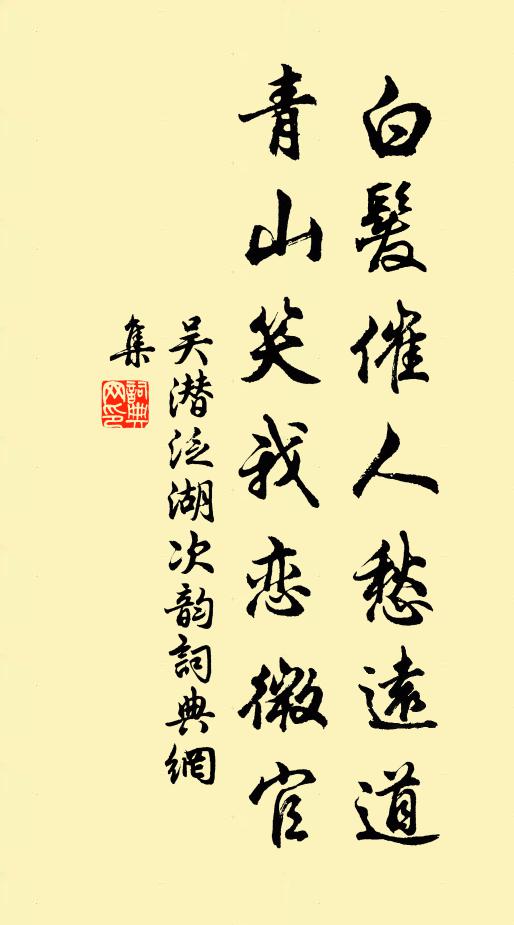 白髮催人愁遠道
青山笑我恋微官
吴潜泛湖次韵詞典網
集
詞典
网印